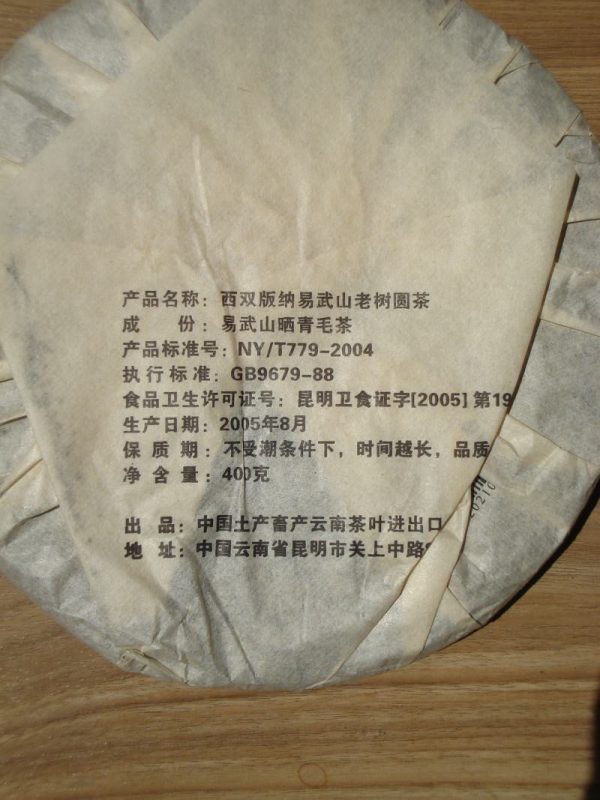 产品名称：西双版纳易武山老树圆茶
成　份：易武山晒青毛茶
产品标准号：NY/T779-2004
执行标准：GB9679-88
食品卫生许可证号：昆明卫食证字[2005]第19
生产日期：2005年8月
保质期：不受潮条件下，时间越长，品质
净含量：400克
出品：中国土产畜产云南茶叶进出口
地址：中国云南省昆明市关上中路